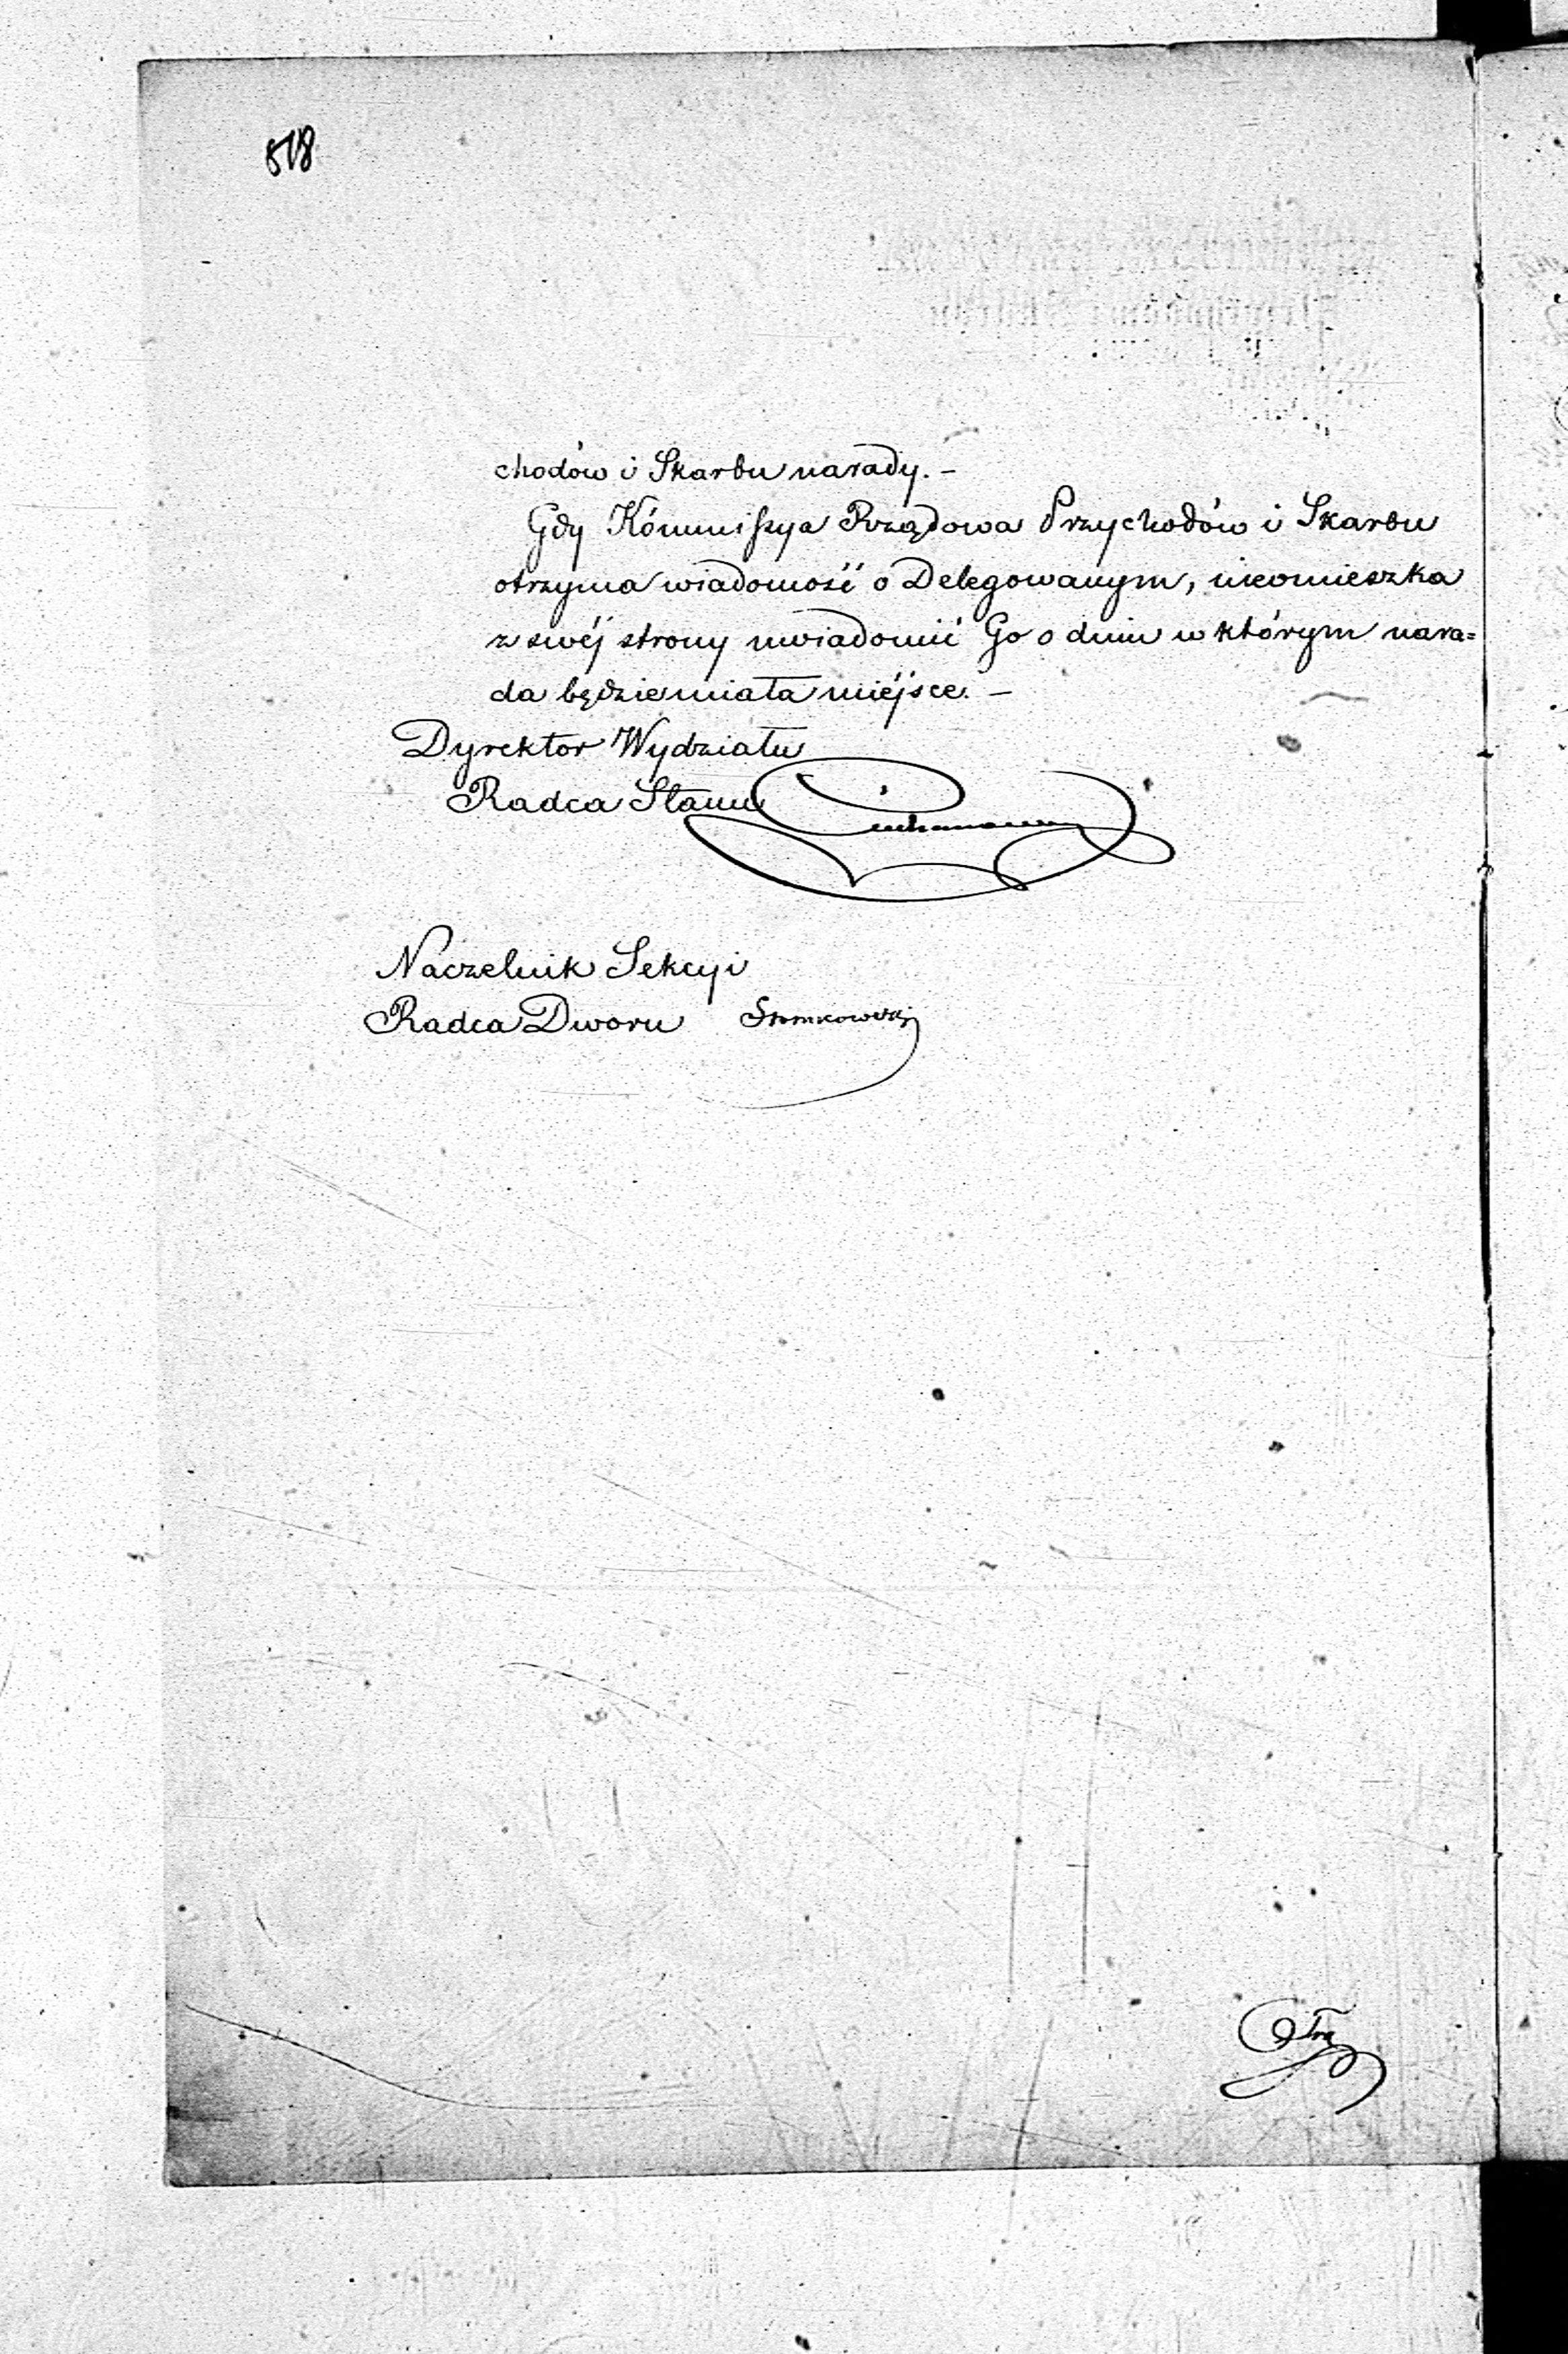 518
chodów i Skarbu narady. –
Gdy Kómmissya Rządowa Przychodów i Skarbu
otrzyma wiadomość o Delegowanym, nieomieszka
z swéj strony uwiadomić Go o dniu w którym nara=
da będzie miała miéjsce. –
Dyrektor Wydziału
Radca Stanu
Naczelnik Sekcyi
Radca Dworu